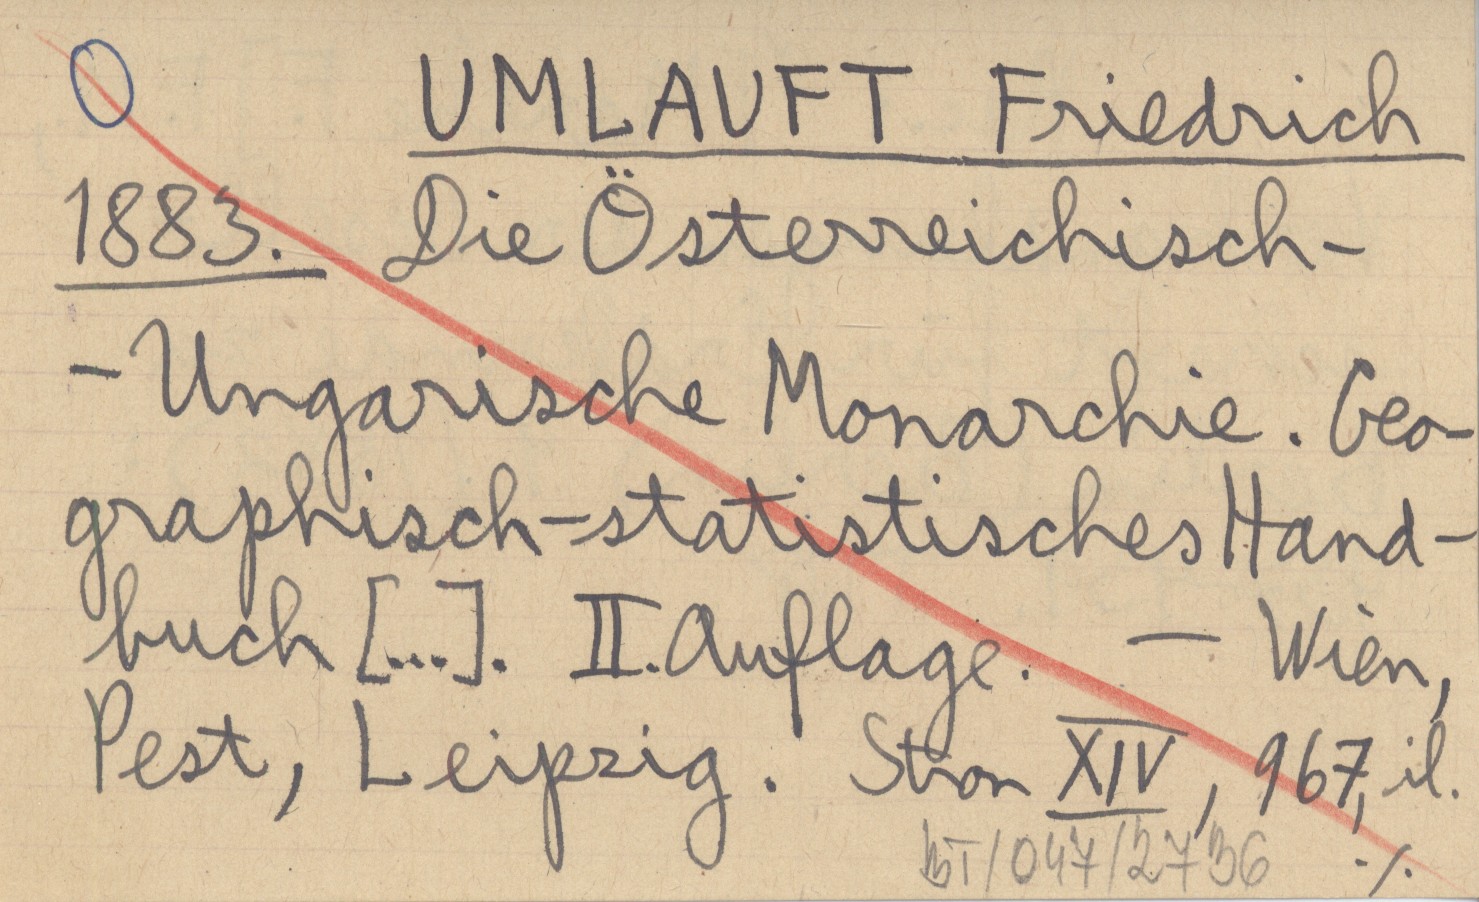 UMLAUFT Friedrich
1883. Die Österreichisch-
-Ungarische Monarchie. Geo-
graphisch-statistisches Hand-
buch [...]. II. Auflage. — Wien,
Pest, Leipzig. Stron XIV, 967, il.
BT/047/2736 ./.